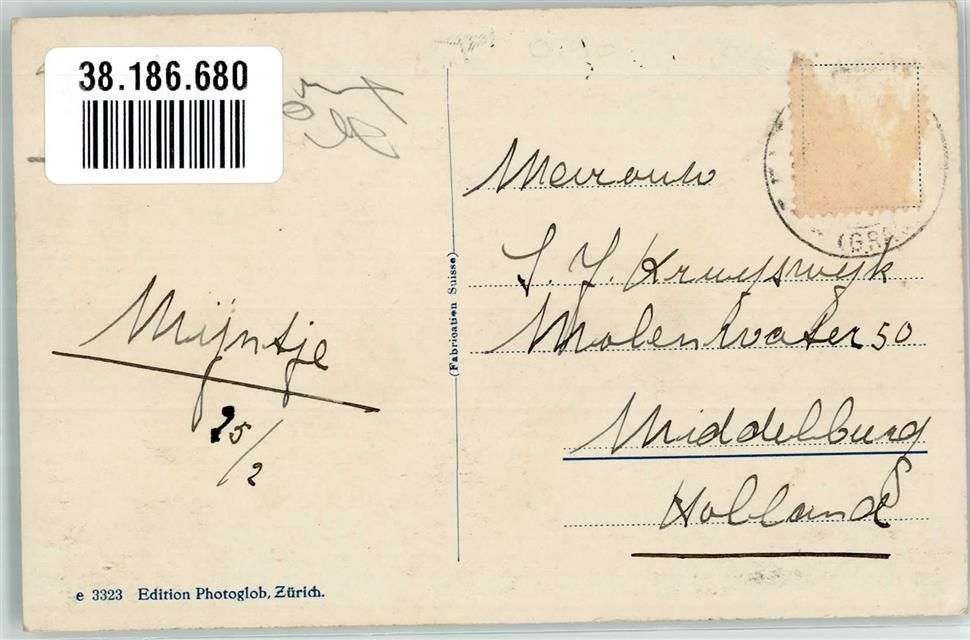 38.186.680
Mevrouw
S. J. Kruyswyk
Molenwater 50
Middelburg
Holland
Mijntje
25/2
(Fabrication Suisse)
(GR
e 3323 Edition Photoglob, Zürich.